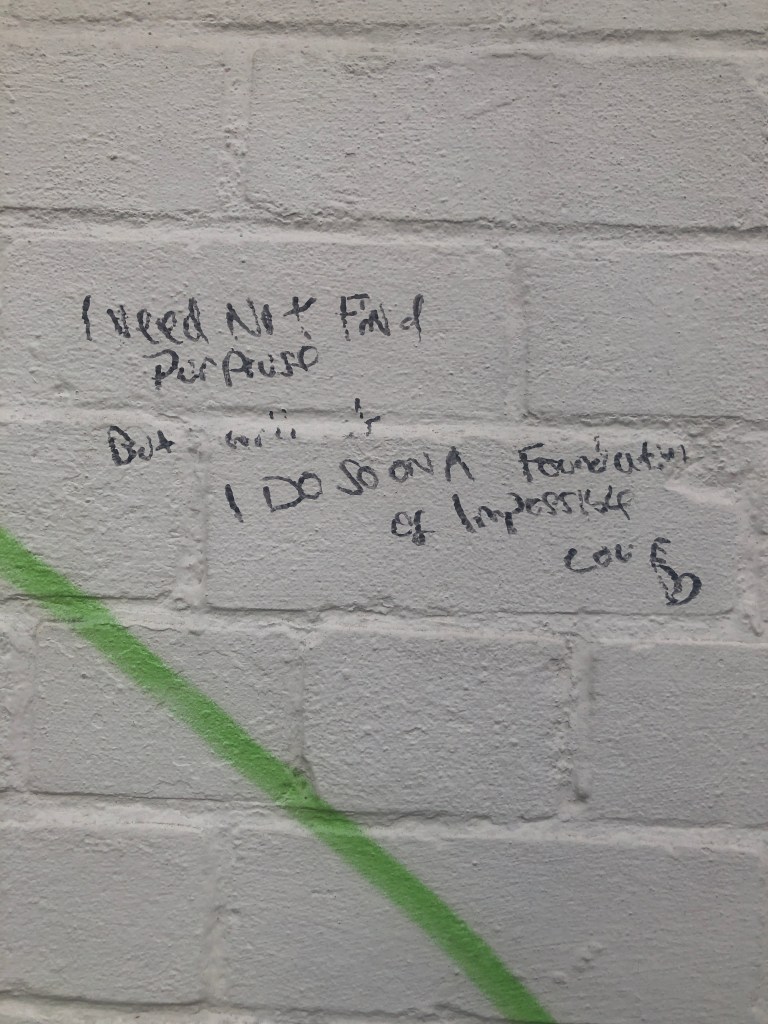 I Need Not Find
Purpouse
But will it
I DO SO ON A Foundation
of Impossible
LOVE